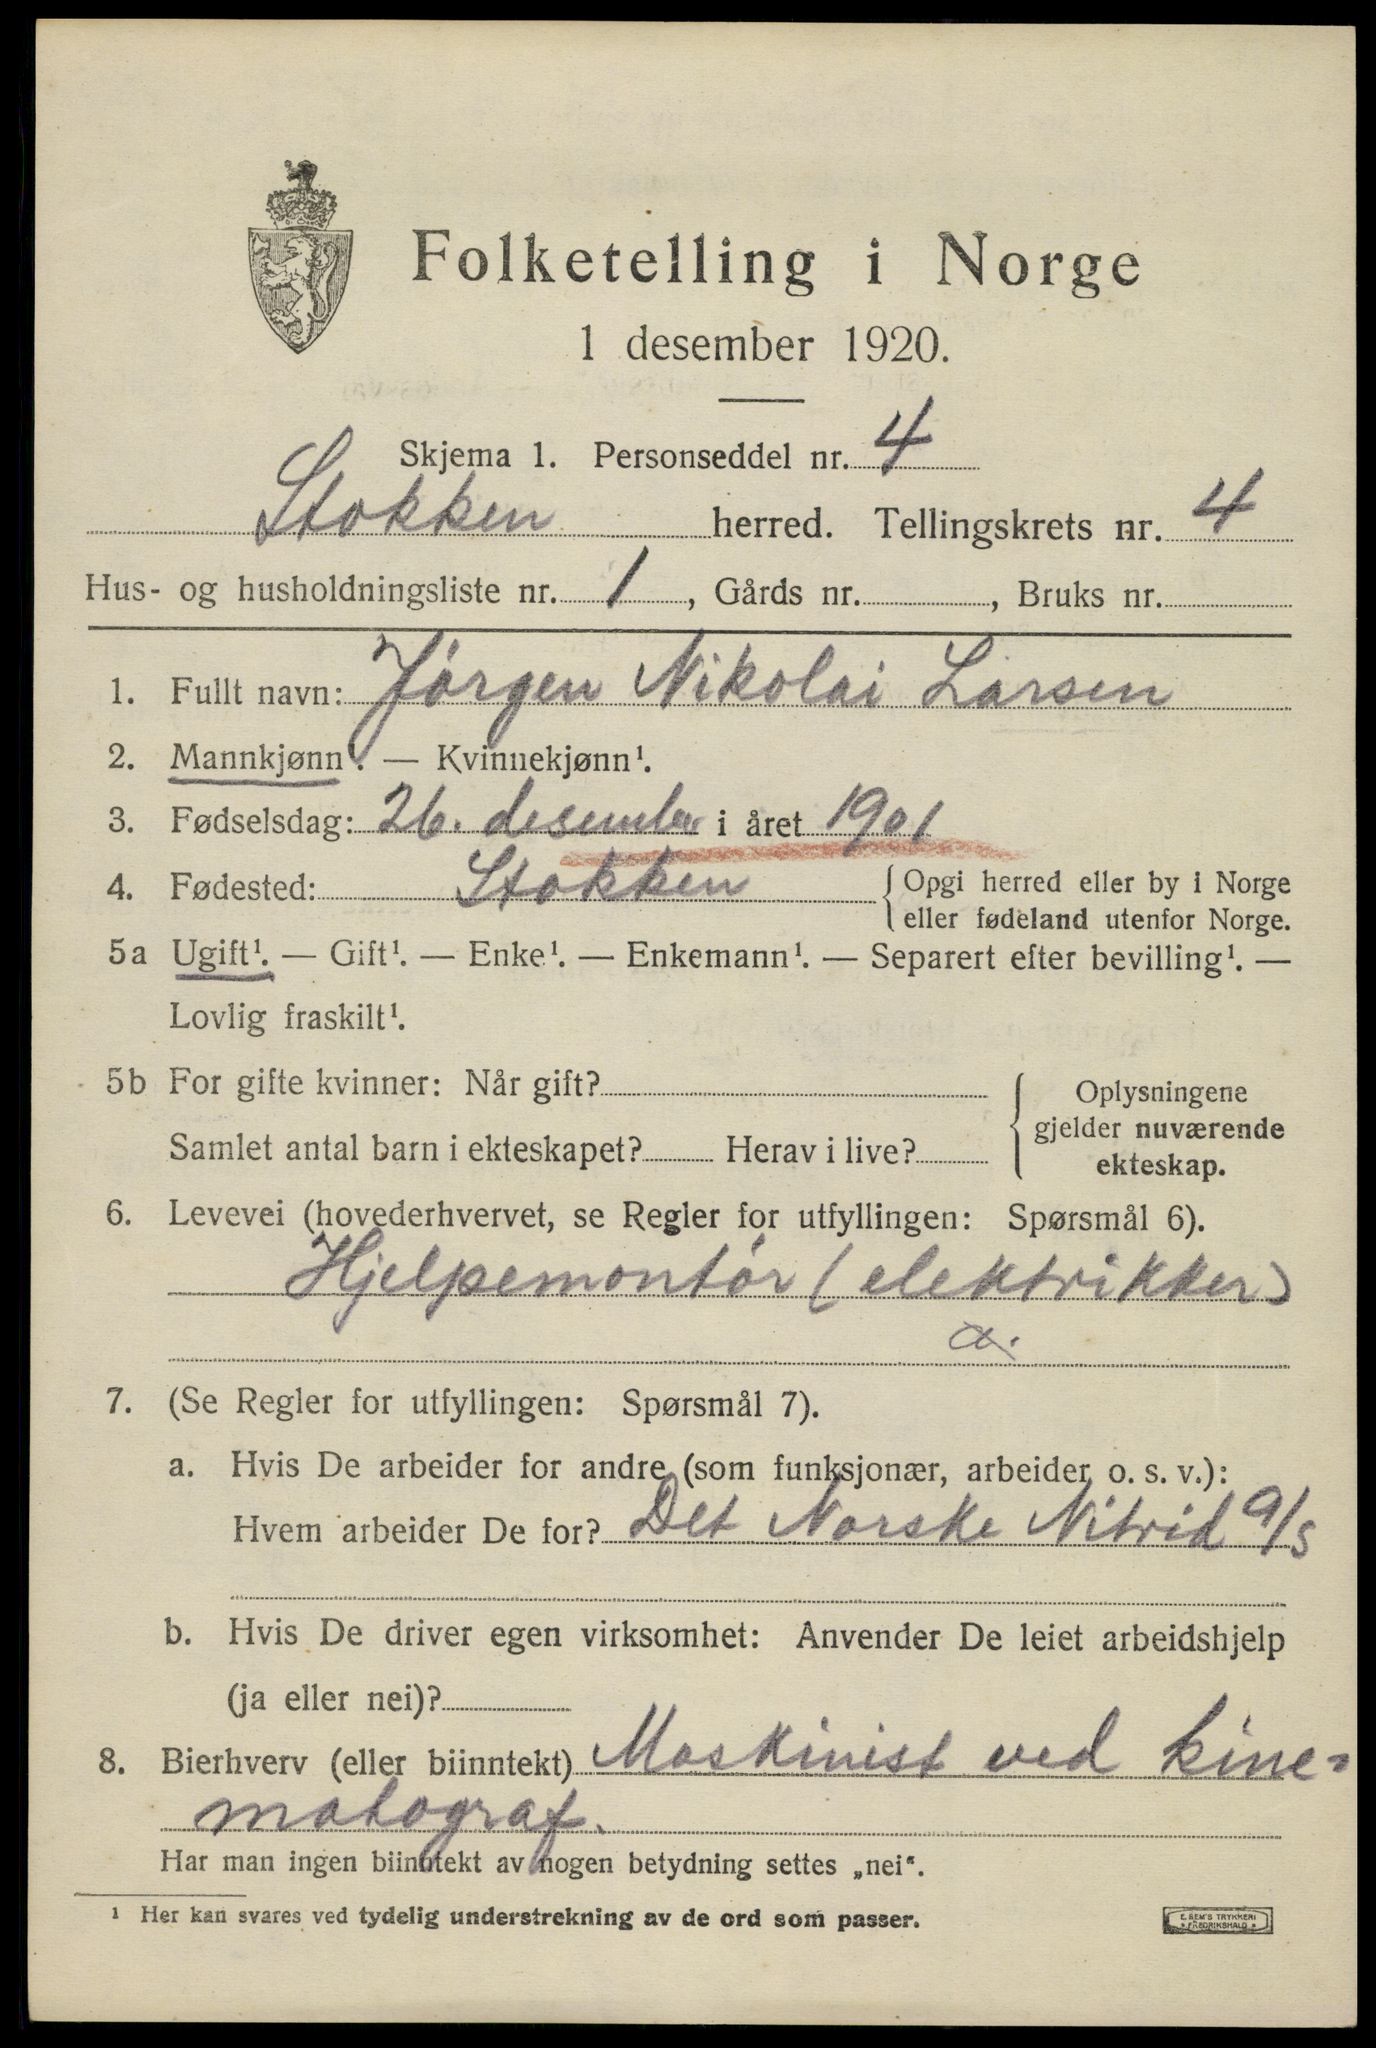 Folketelling i Norge
1 desember 1920.
Skjema 1. Personseddel nr. 4
Stokken herred. Tellingskrets nr. 4
Hus- og husholdningsliste nr. 1, Gårds nr. , Bruks nr.
1. Fullt navn: Jörgen Nikolai Larsen
2. Mannkjønn¹. — Kvinnekjønn¹.
3. Fødselsdag: 26. desember i året 1901
4. Fødested: Stokken { Opgi herred eller by i Norge
eller fødeland utenfor Norge.
5a Ugift¹. — Gift¹. — Enke¹. — Enkemann¹. — Separert efter bevilling¹. —
Lovlig fraskilt¹.
5b For gifte kvinner: Når gift? { Oplysningene
gjelder nuværende
Samlet antal barn i ekteskapet? Herav i live?
ekteskap.
6. Levevei (hovederhvervet, se Regler for utfyllingen: Spørsmål 6).
Hjelpemontör (elektrikker)
a.
7. (Se Regler for utfyllingen: Spørsmål 7).
a. Hvis De arbeider for andre (som funksjonær, arbeider o. s. v.):
Hvem arbeider De for? Det Norske Nitrid a/s
b. Hvis De driver egen virksomhet: Anvender De leiet arbeidshjelp
(ja eller nei)?
8. Bierhverv (eller biinntekt) Maskinist ved kine-
matograf.
Har man ingen biinntekt av nogen betydning settes „nei“.
¹ Her kan svares ved tydelig understrekning av de ord som passer.
E. SEM'S TRYKKERI
FREDRIKSHALD